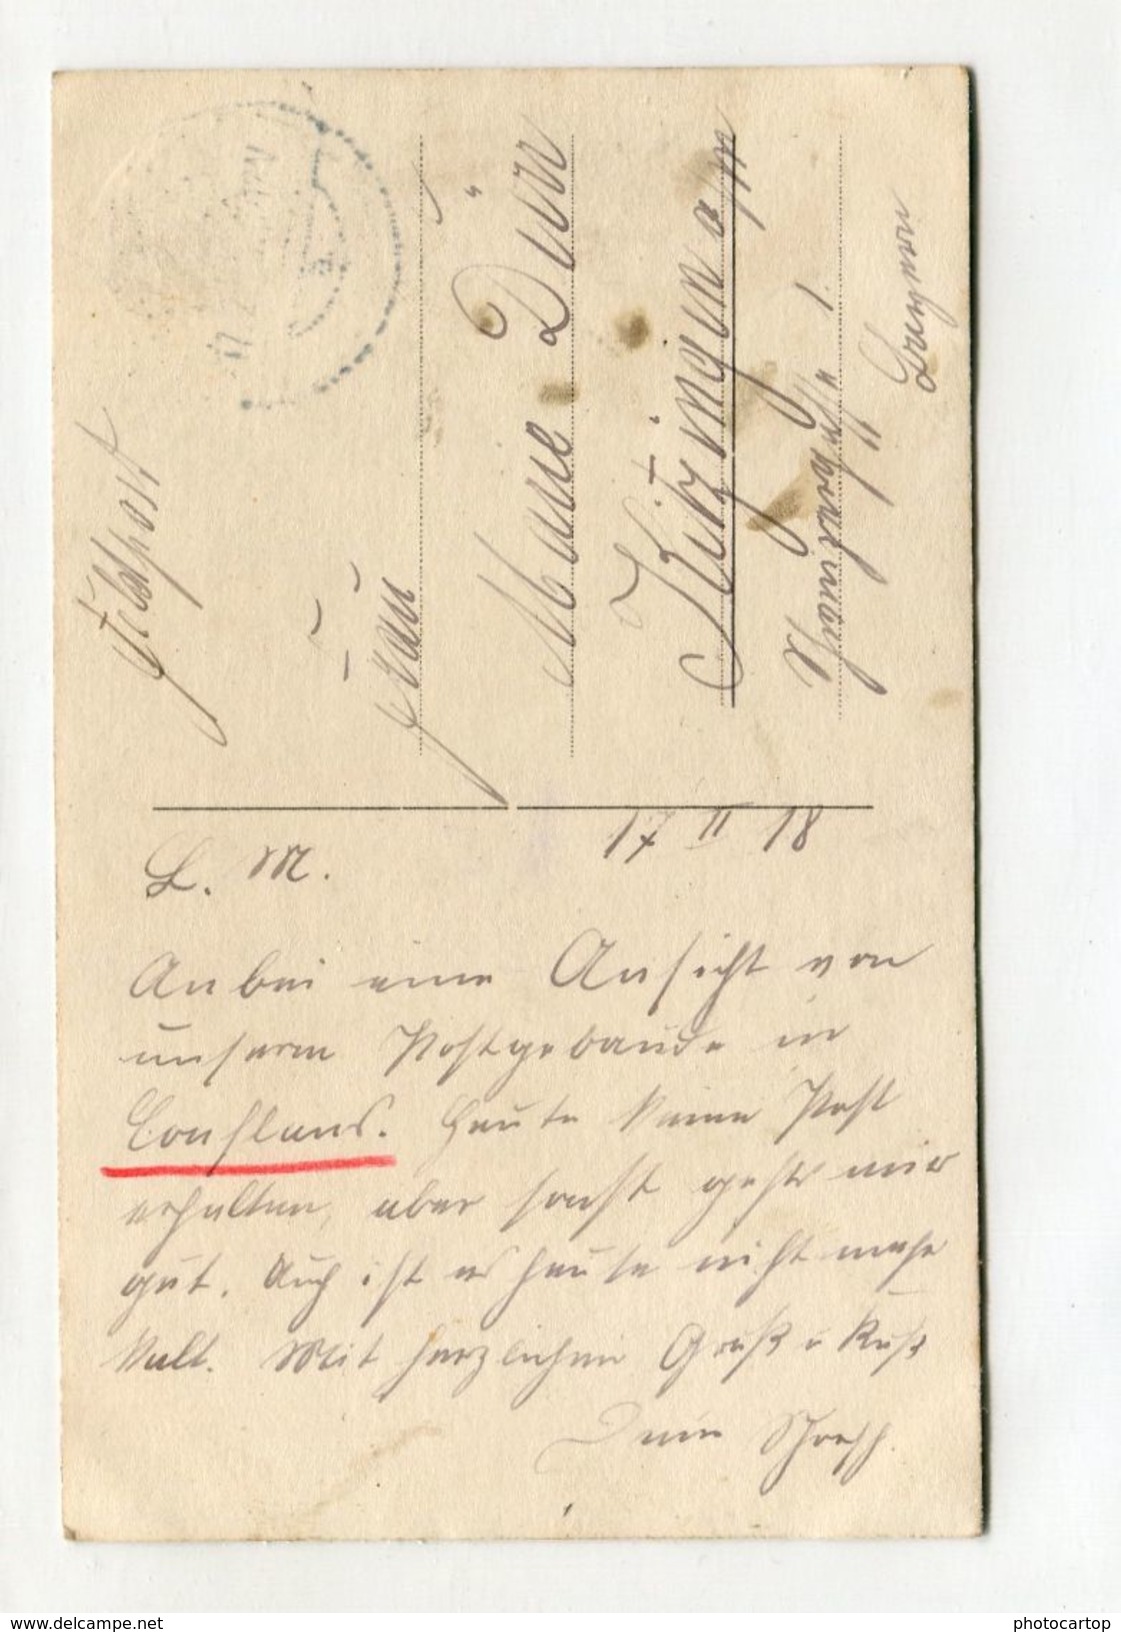 Feldpost
Frau
Marie Dürr
Kitzingen a/M
Bayern
17 II 18
L. M.
Anbei eine Ansicht von
unserem Postgebäude in
Conflans. Heute keine Post
erhalten, aber sonst gehts mir
gut. Auch ist es heute nicht mehr
kalt. Mit herzlichem Gruß u Kuß
Dein
www.delcampe.net
photocartop